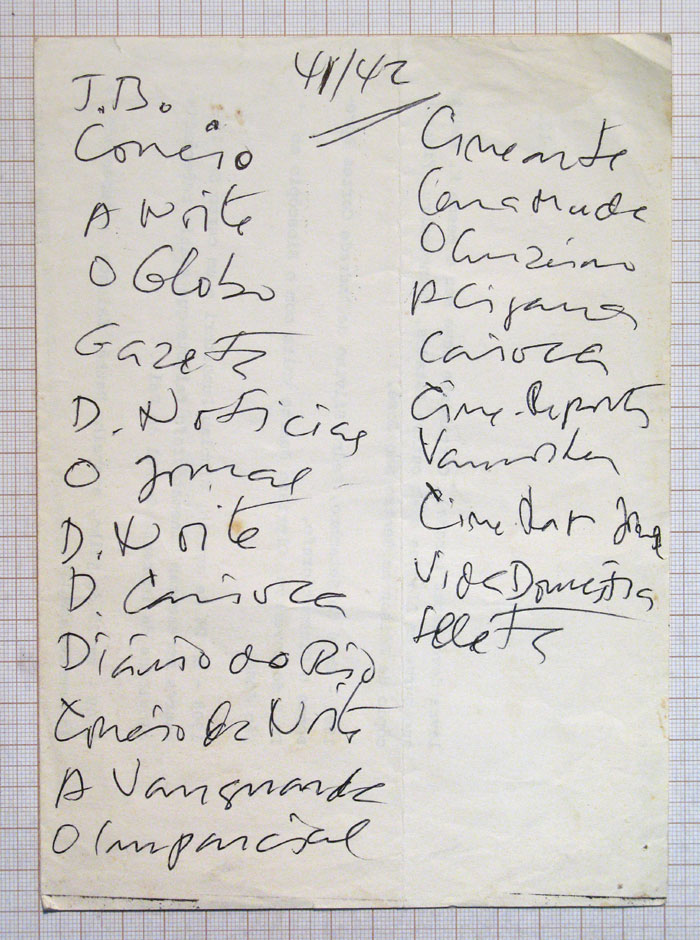 41/42
J.B.
Correio
A Noite
O Globo
Gazeta
D. Noticias
O Jornal
D. Noite
D. Carioca
Diário do Rio
Correio da Noite
A Vanguarda
O Imparcial
Cinearte
Cena Muda
O Cruzeiro
A Cigarra
Carioca
Cine-Reporter
Vamos Ler
Cine Jornal
Vida Doméstica
Selecta